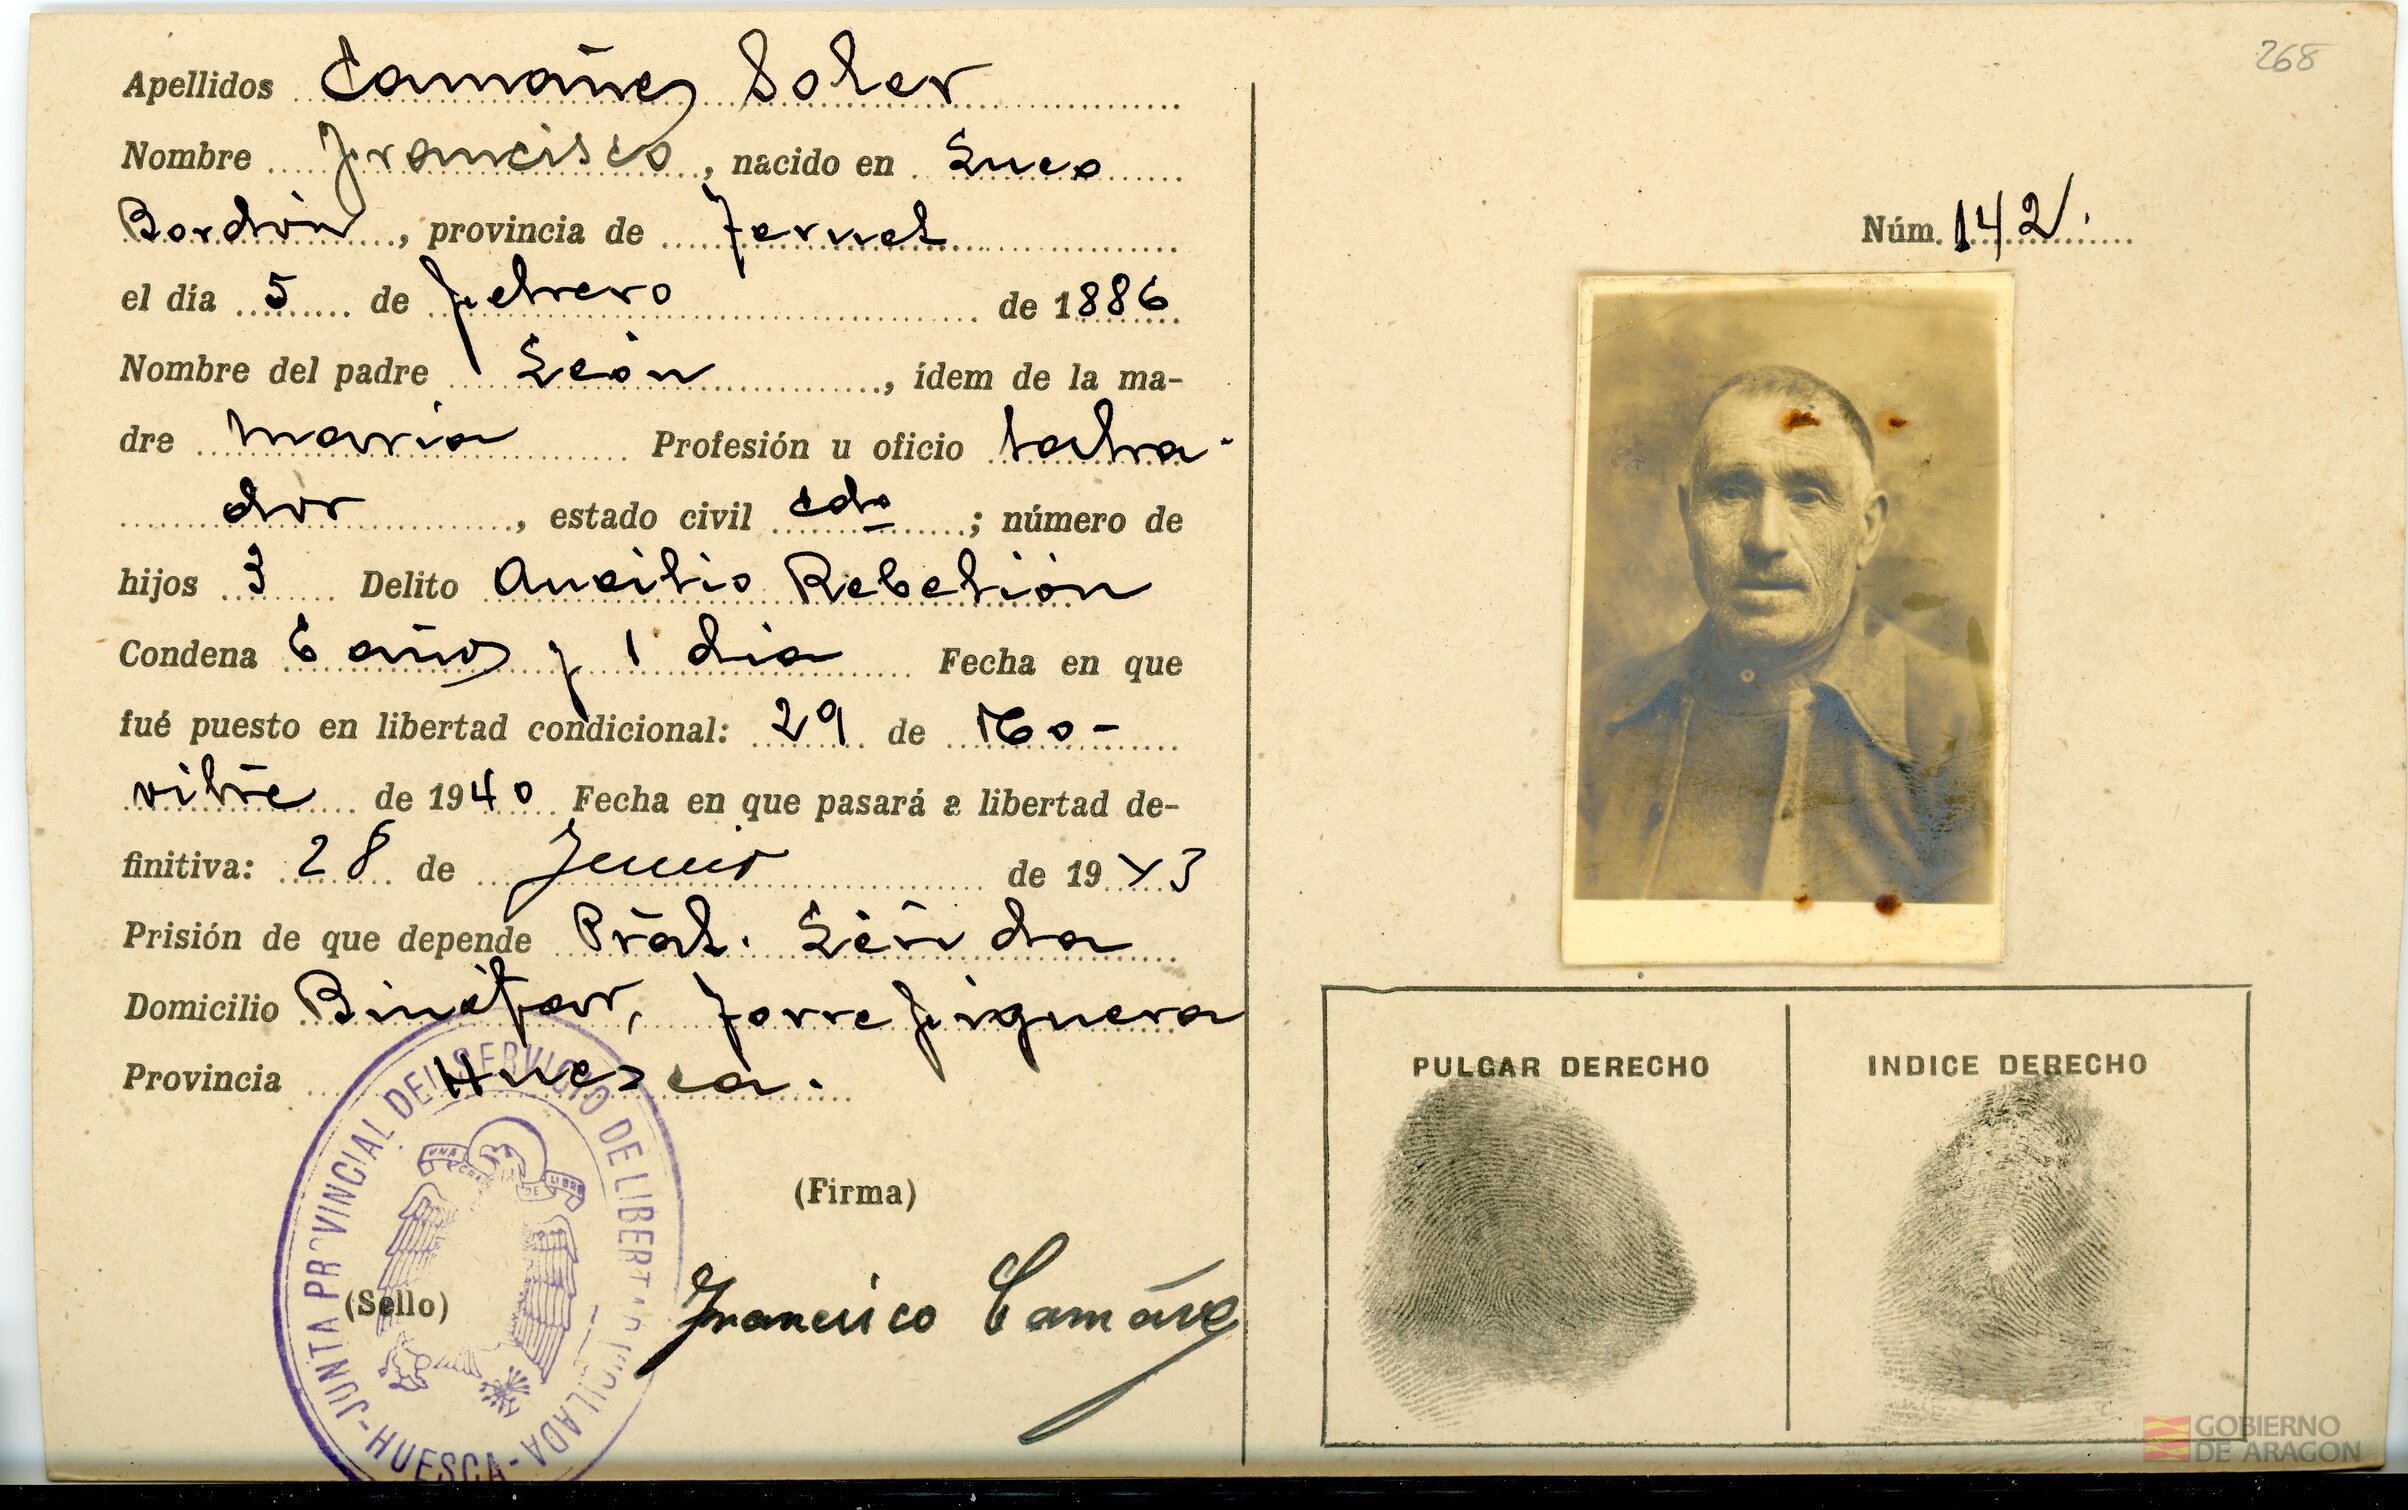 268
Apellidos Camañes Soler
Nombre Francisco, nacido en Luco
Bordón, provincia de Teruel
el día 5 de febrero de 1886
Nombre del padre León, ídem de la ma-
dre María Profesión u oficio labra-
dor, estado civil cdo; número de
hijos 3 Delito Auxilio Rebelión
Condena 6 años y 1 dia Fecha en que
fué puesto en libertad condicional: 29 de No-
vibre de 1940 Fecha en que pasará a libertad de-
finitiva: 28 de Junio de 1943
Prisión de que depende Pral. Lérida
Domicilio Binéfar, Torre figuera
Provincia Huesca.
(Firma)
(Sello)
Francisco Camañe
JUNTA PROVINCIAL DEL SERVICIO DE LIBERTAD VIGILADA - HUESCA -
UNA GRANDE LIBRE
Núm. 142.
PULGAR DERECHO
INDICE DERECHO
GOBIERNO
DE ARAGON